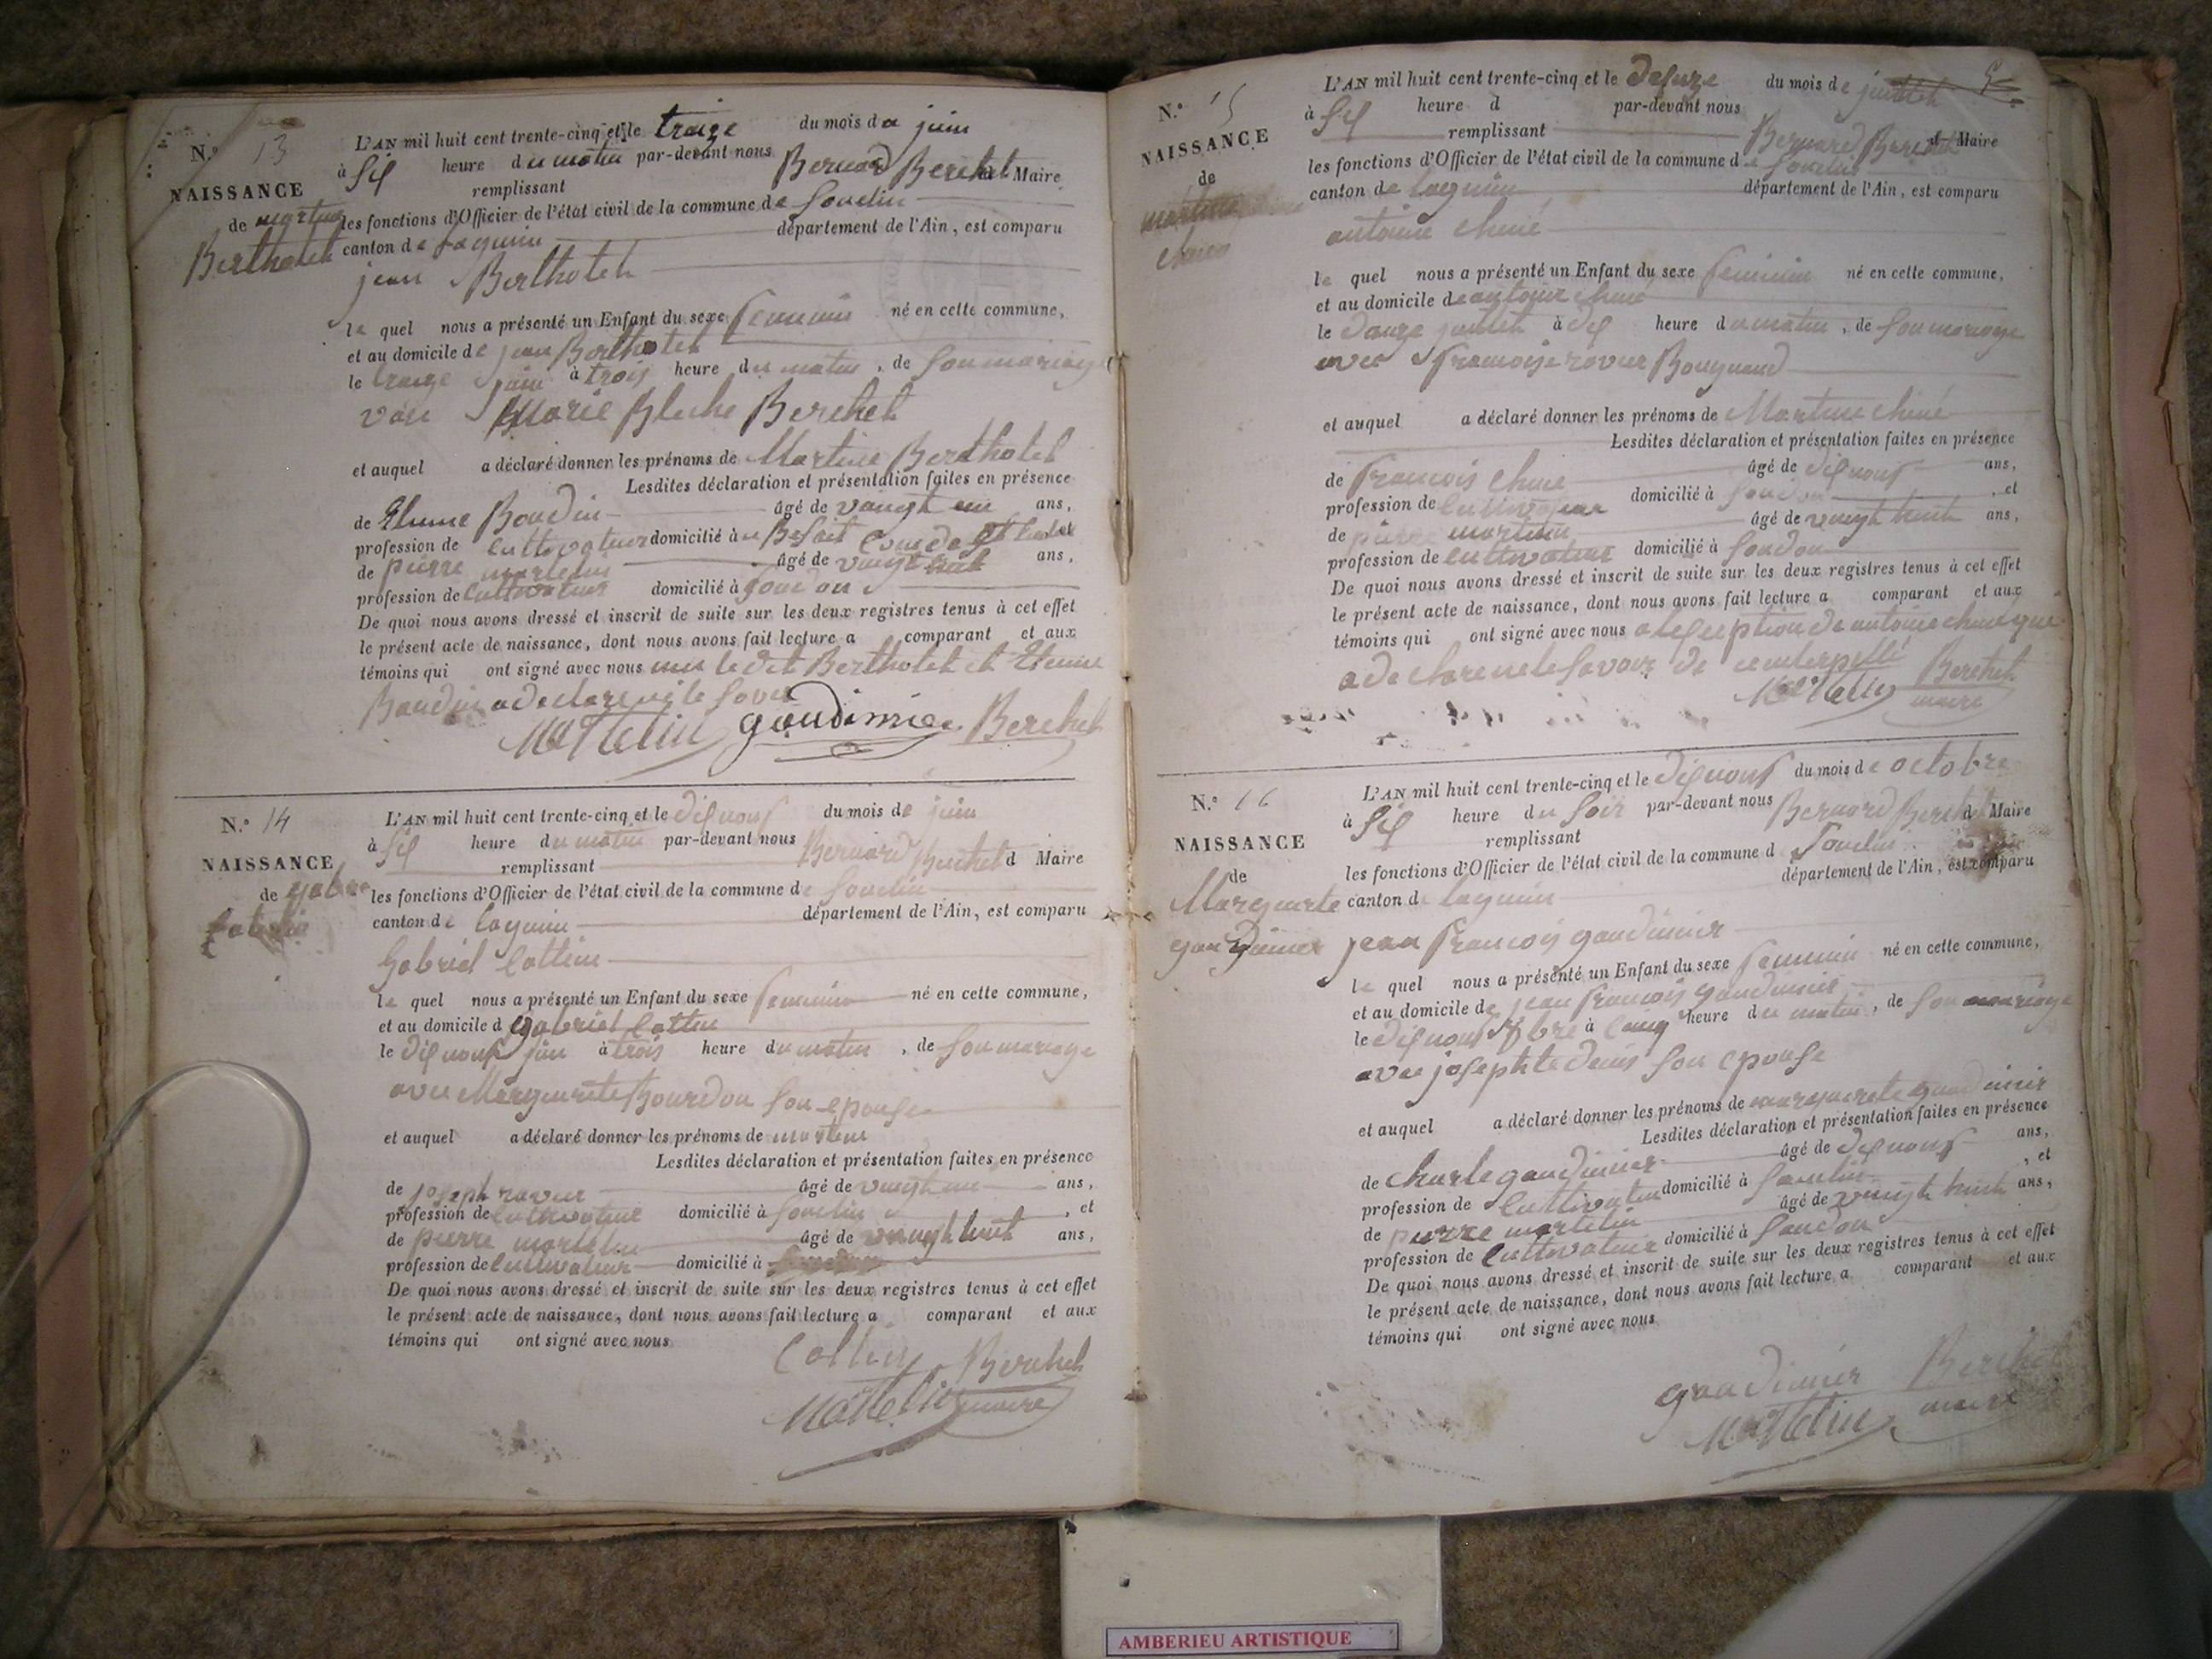 N.° 13
NAISSANCE
de
Berthotet
L'AN mil huit cent trente-cinq et le traize du mois de juin
à Six heure du matin par-devant nous Bernard Berchet Maire
remplissant
les fonctions d'Officier de l'état civil de la commune de
canton de département de l'Ain, est comparu
jean Berthotet
le quel nous a présenté un Enfant du sexe feminin né en cette commune,
et au domicile de jean Berthotet
le traize juin à trois heure du matin, de son mariage
Marie Berchet
et auquel a déclaré donner les prénoms de Martine Berthotet
Lesdites déclaration et présentation faites en présence
de Etienne Boudin âgé de vaingt un ans,
profession de cultivateur domicilié à
de pierre martelin âgé de vaingt huit ans,
profession de cultivateur domicilié à Soudon
De quoi nous avons dressé et inscrit de suite sur les deux registres tenus à cet effet
le présent acte de naissance, dont nous avons fait lecture a comparant et aux
témoins qui ont signé avec nous le dit Berthotet et Etienne
Boudin a declare ne le
Martelin gaudinier Berchet
N.° 14
NAISSANCE
de
L'AN mil huit cent trente-cinq et le disnouf du mois de juin
à Six heure du matin par-devant nous Bernard Berchet d Maire
remplissant
les fonctions d'Officier de l'état civil de la commune de
canton de département de l'Ain, est comparu
Gabriel Cottin
le quel nous a présenté un Enfant du sexe feminin né en cette commune,
et au domicile d gabriel Cottin
le disnouf juin à trois heure du matin, de son mariage
avec Marguerite Bourdon son epouse
et auquel a déclaré donner les prénoms de
Lesdites déclaration et présentation faites en présence
de joseph âgé de vaingt un ans,
profession de cultivateur domicilié à , et
de pierre martelin âgé de vaingt huit ans,
profession de cultivateur domicilié à
De quoi nous avons dressé et inscrit de suite sur les deux registres tenus à cet effet
le présent acte de naissance, dont nous avons fait lecture a comparant et aux
témoins qui ont signé avec nous
Cottin Berchet
Martelin maire
N.° 15
NAISSANCE
de
L'AN mil huit cent trente-cinq et le du mois de juillet
à Six heure d par-devant nous
remplissant Bernard Berchet d Maire
les fonctions d'Officier de l'état civil de la commune de
canton de département de l'Ain, est comparu
antoine
le quel nous a présenté un Enfant du sexe feminin né en cette commune,
et au domicile de antoine
le douze juillet à dix heure du matin, de son mariage
avec
et auquel a déclaré donner les prénoms de Martine
Lesdites déclaration et présentation faites en présence
de François âgé de disnouf ans,
profession de cultivateur domicilié à , et
de pierre martelin âgé de vaingt huit ans,
profession de cultivateur domicilié à Soudon
De quoi nous avons dressé et inscrit de suite sur les deux registres tenus à cet effet
le présent acte de naissance, dont nous avons fait lecture a comparant et aux
témoins qui ont signé avec nous a lexseption de antoine qui
a declare ne le savoir de ce Berchet
Martelin maire
N.° 16
NAISSANCE
de
Marguerite
gaudinier
L'AN mil huit cent trente-cinq et le disnouf du mois de octobre
à Six heure du soir par-devant nous Bernard Berchet d Maire
remplissant
les fonctions d'Officier de l'état civil de la commune d
canton d département de l'Ain, est comparu
jean François gaudinier
le quel nous a présenté un Enfant du sexe feminin né en cette commune,
et au domicile de jean François gaudinier
le disnouf 8bre à cinq heure du matin, de son mariage
avec josephte denis son epouse
et auquel a déclaré donner les prénoms de marguerete gaudinier
Lesdites déclaration et présentation faites en présence
de Charle gaudinier âgé de disnouf ans,
profession de cultivateur domicilié à , et
de pierre martelin âgé de vaingt huit ans,
profession de cultivateur domicilié à Soudon
De quoi nous avons dressé et inscrit de suite sur les deux registres tenus à cet effet
le présent acte de naissance, dont nous avons fait lecture a comparant et aux
témoins qui ont signé avec nous
gaudinier Berchet
Martelin maire
AMBERIEU ARTISTIQUE